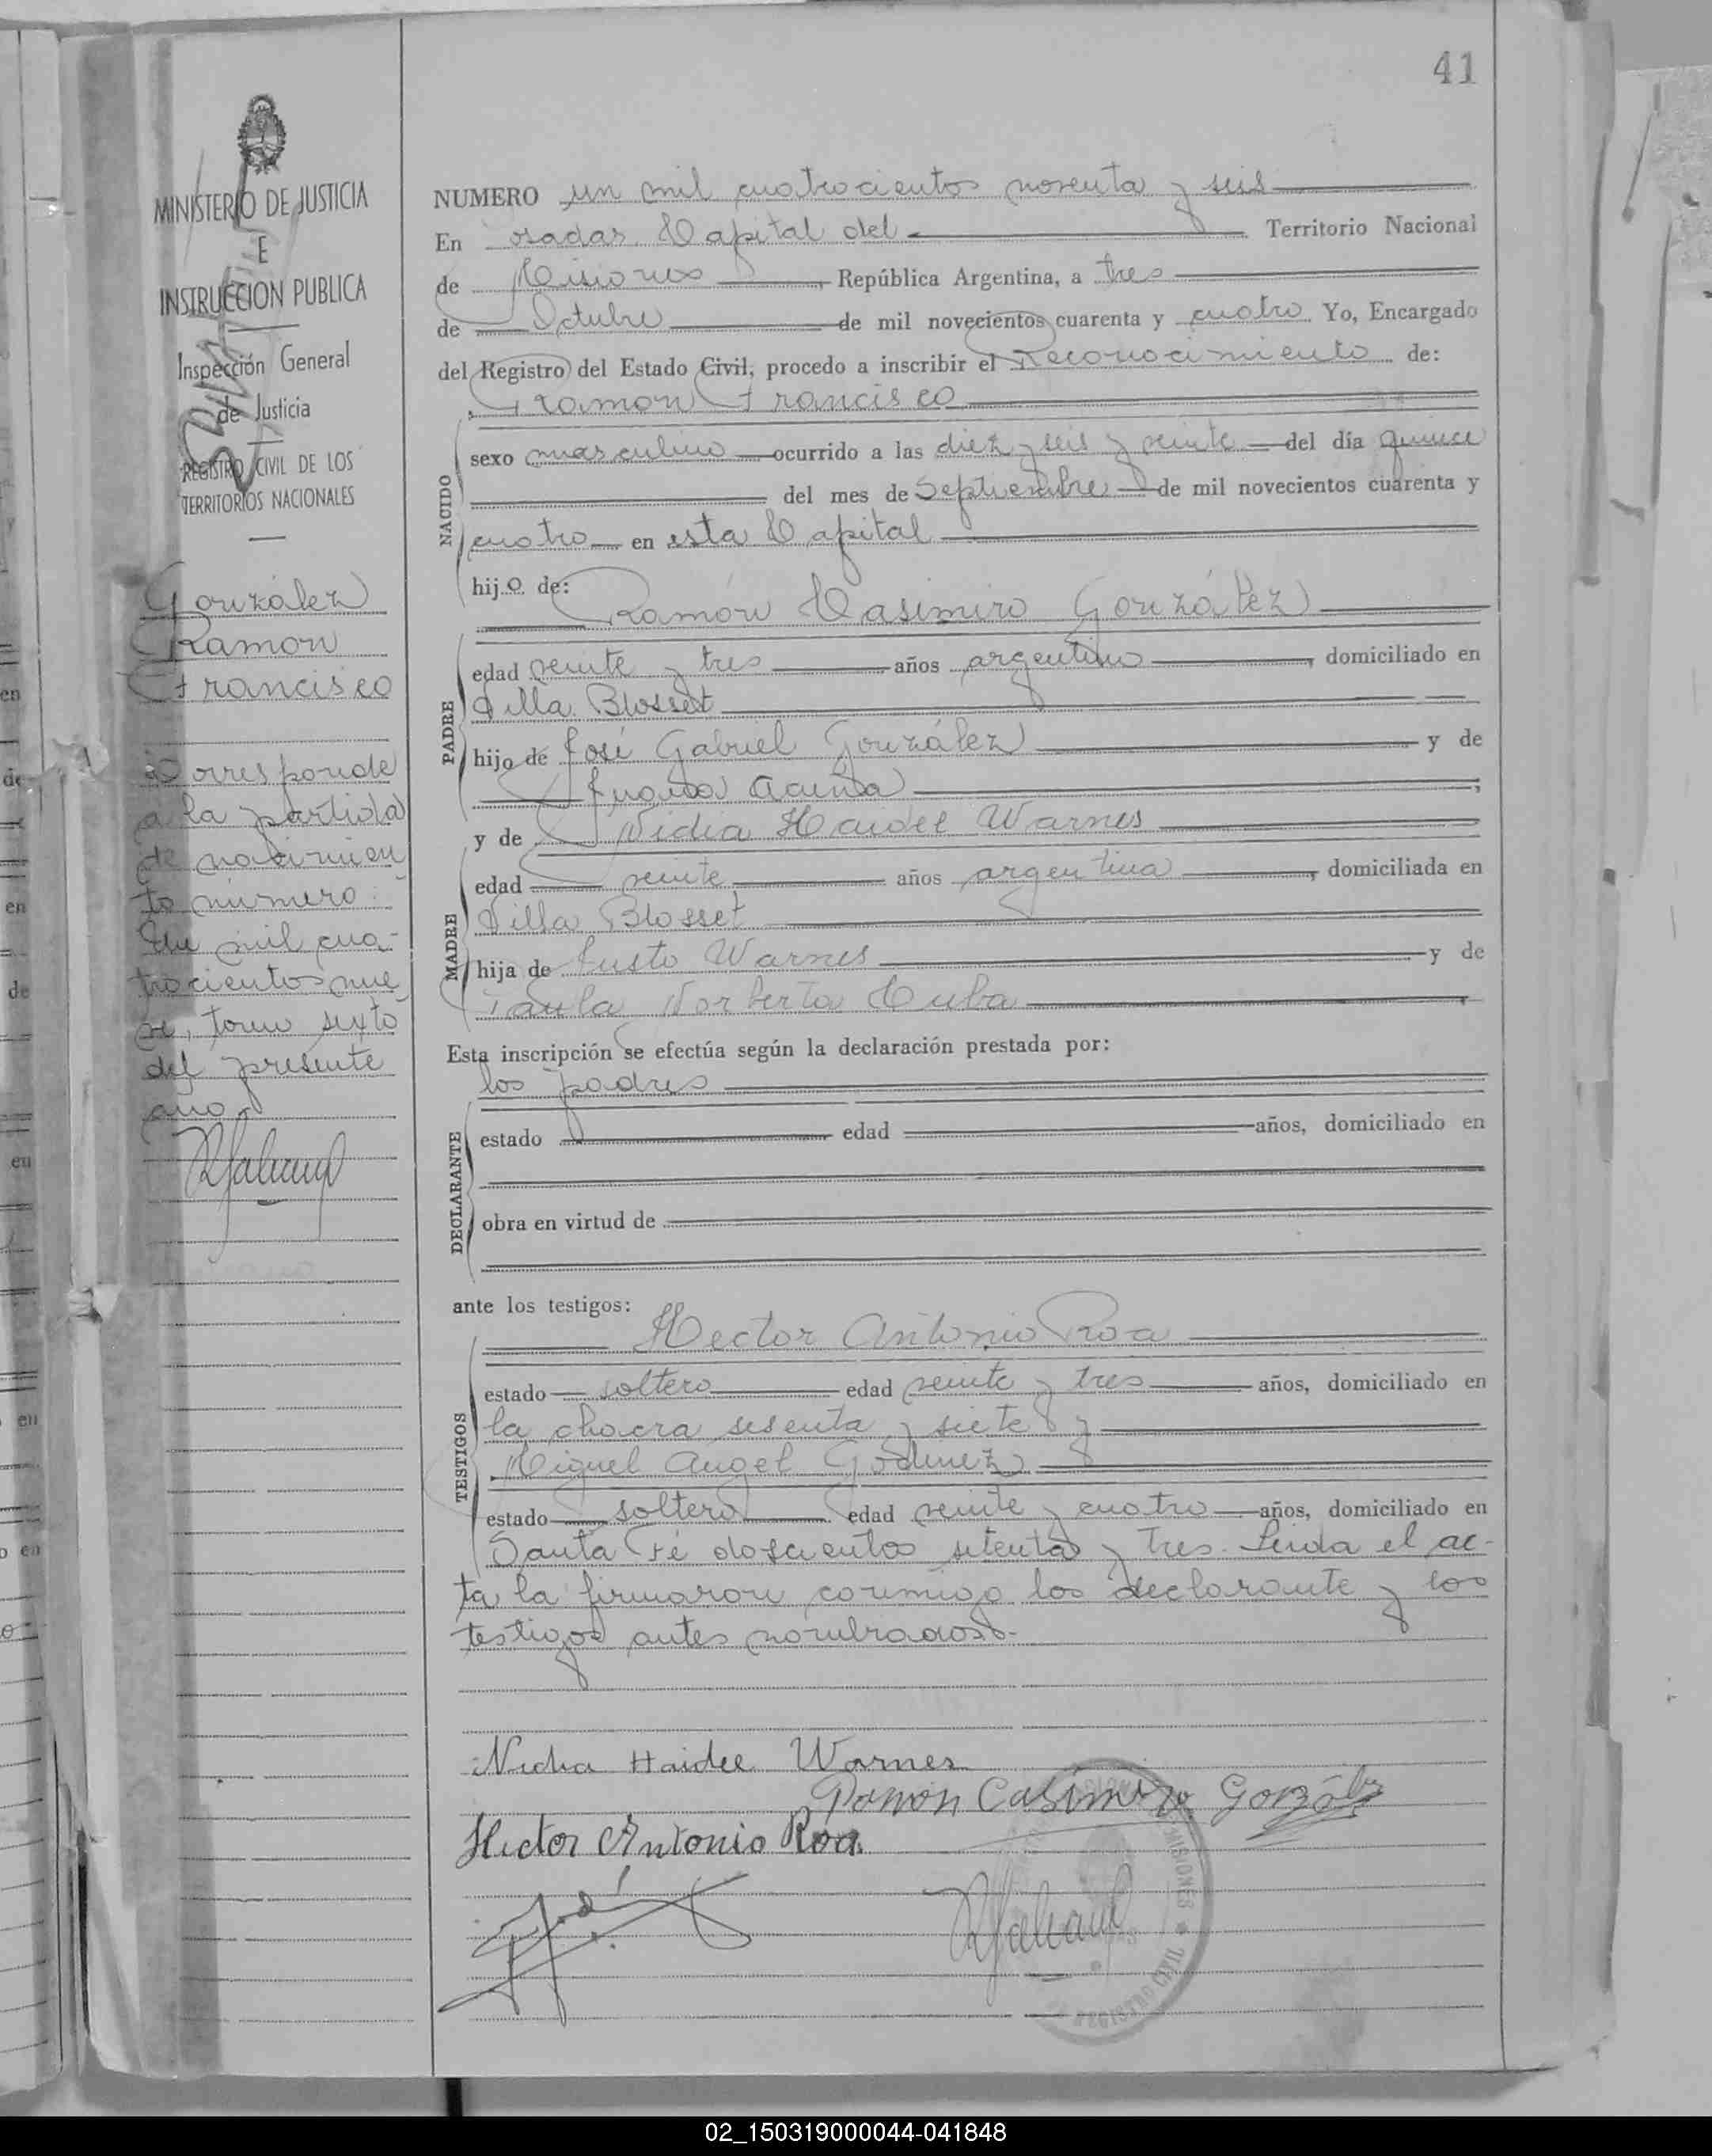 41
MINISTERIO DE JUSTICIA
E
INSTRUCCION PUBLICA
Inspección General
de Justicia
REGISTRO CIVIL DE LOS
TERRITORIOS NACIONALES
González
Ramon
Francisco
Corresponde
a la partida
de nacimien
to número:
Un mil cua-
trocientos nue
ve, tomo sexto
del presente
año.
NUMERO un mil cuatrocientos noventa y seis
En Posadas Capital del Territorio Nacional
de Misiones, República Argentina, a tres
de Octubre de mil novecientos cuarenta y cuatro Yo, Encargado
del Registro del Estado Civil, procedo a inscribir el Reconocimiento de:
Ramon Francisco
NACIDO
sexo masculino ocurrido a las diez y seis y veinte del día quince
del mes de Septiembre de mil novecientos cuarenta y
cuatro en esta Capital
hijo de:
Ramón Casimiro González
PADRE
edad veinte y tres años argentino, domiciliado en
Villa Blosset
hijo de José Gabriel González y de
Juana Acuña;
y de Nidia Haidee Warnes
MADRE
edad veinte años argentina, domiciliada en
Villa Blosset
hija de Justo Warnes y de
Paula Norberta Cuba
Esta inscripción se efectúa según la declaración prestada por:
los padres
DECLARANTE
estado edad años, domiciliado en
obra en virtud de
ante los testigos:
Hector Antonio Roa
TESTIGOS
estado soltero edad veinte y tres años, domiciliado en
la chacra sesenta y siete y
Miguel Angel Godinez
estado soltero edad veinte y cuatro años, domiciliado en
Santa Fé doscientos setenta y tres. Leida el ac-
ta la firmaron conmigo los declarante y los
testigos antes nombrados.-
Nidia Haidee Warnes
Ramón Casimiro González
Hector Antonio Roa
MISIONES
REGISTRO CIVIL
02_150319000044-041848